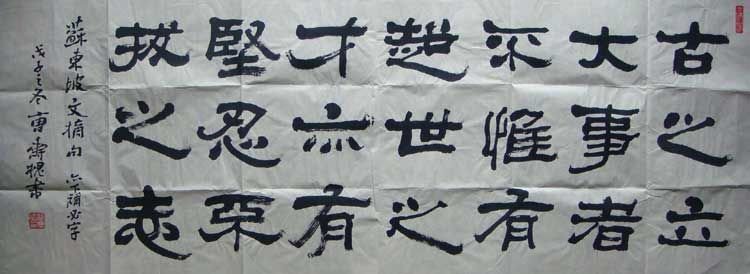 古之立
大事者
不惟有
超世之
才亦有
堅忍不
拔之志
蘇東坡文摘句 亦下漏必字
戊子之冬 曹 書